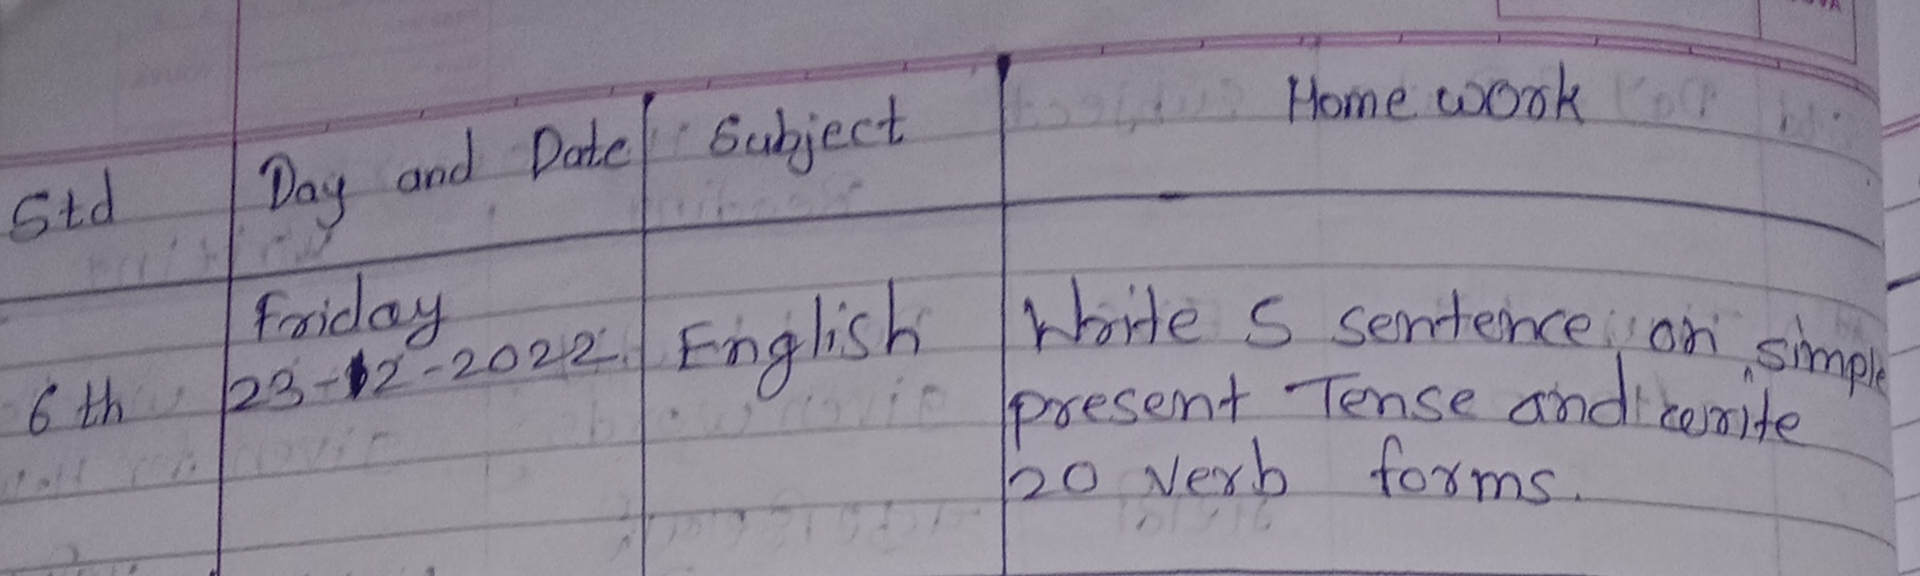 Std Day and Date Subject Home work
6th Friday English Write 5 sentence on simple
23-12-2022 present Tense and write
20 verb forms.